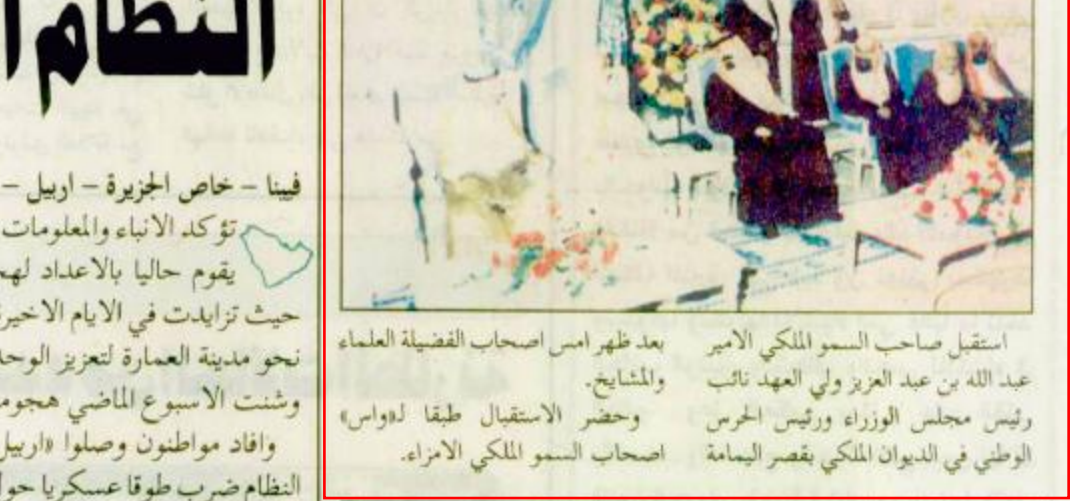 استقبل صاحب السمو الملكي الامير
عبد الله بن عبد العزيز ولي العهد نائب
رئيس مجلس الوزراء ورئيس الحرس
الوطني في الديوان الملكي بقصر اليمامة
بعد ظهر امس اصحاب الفضيلة العلماء
والمشايخ.
وحضر الاستقبال طبقا لـ«واس»
اصحاب السمو الملكي الامراء.
النظام
فيينا – خاص الجزيرة – اربيل –
تؤكد الانباء والمعلومات
يقوم حاليا بالاعداد
حيث تزايدت في الايام
نحو مدينة العمارة لتعزيز
وشنت الاسبوع الماضي
وافاد مواطنون وصلوا «اربيل
النظام ضرب طوقا عسكريا